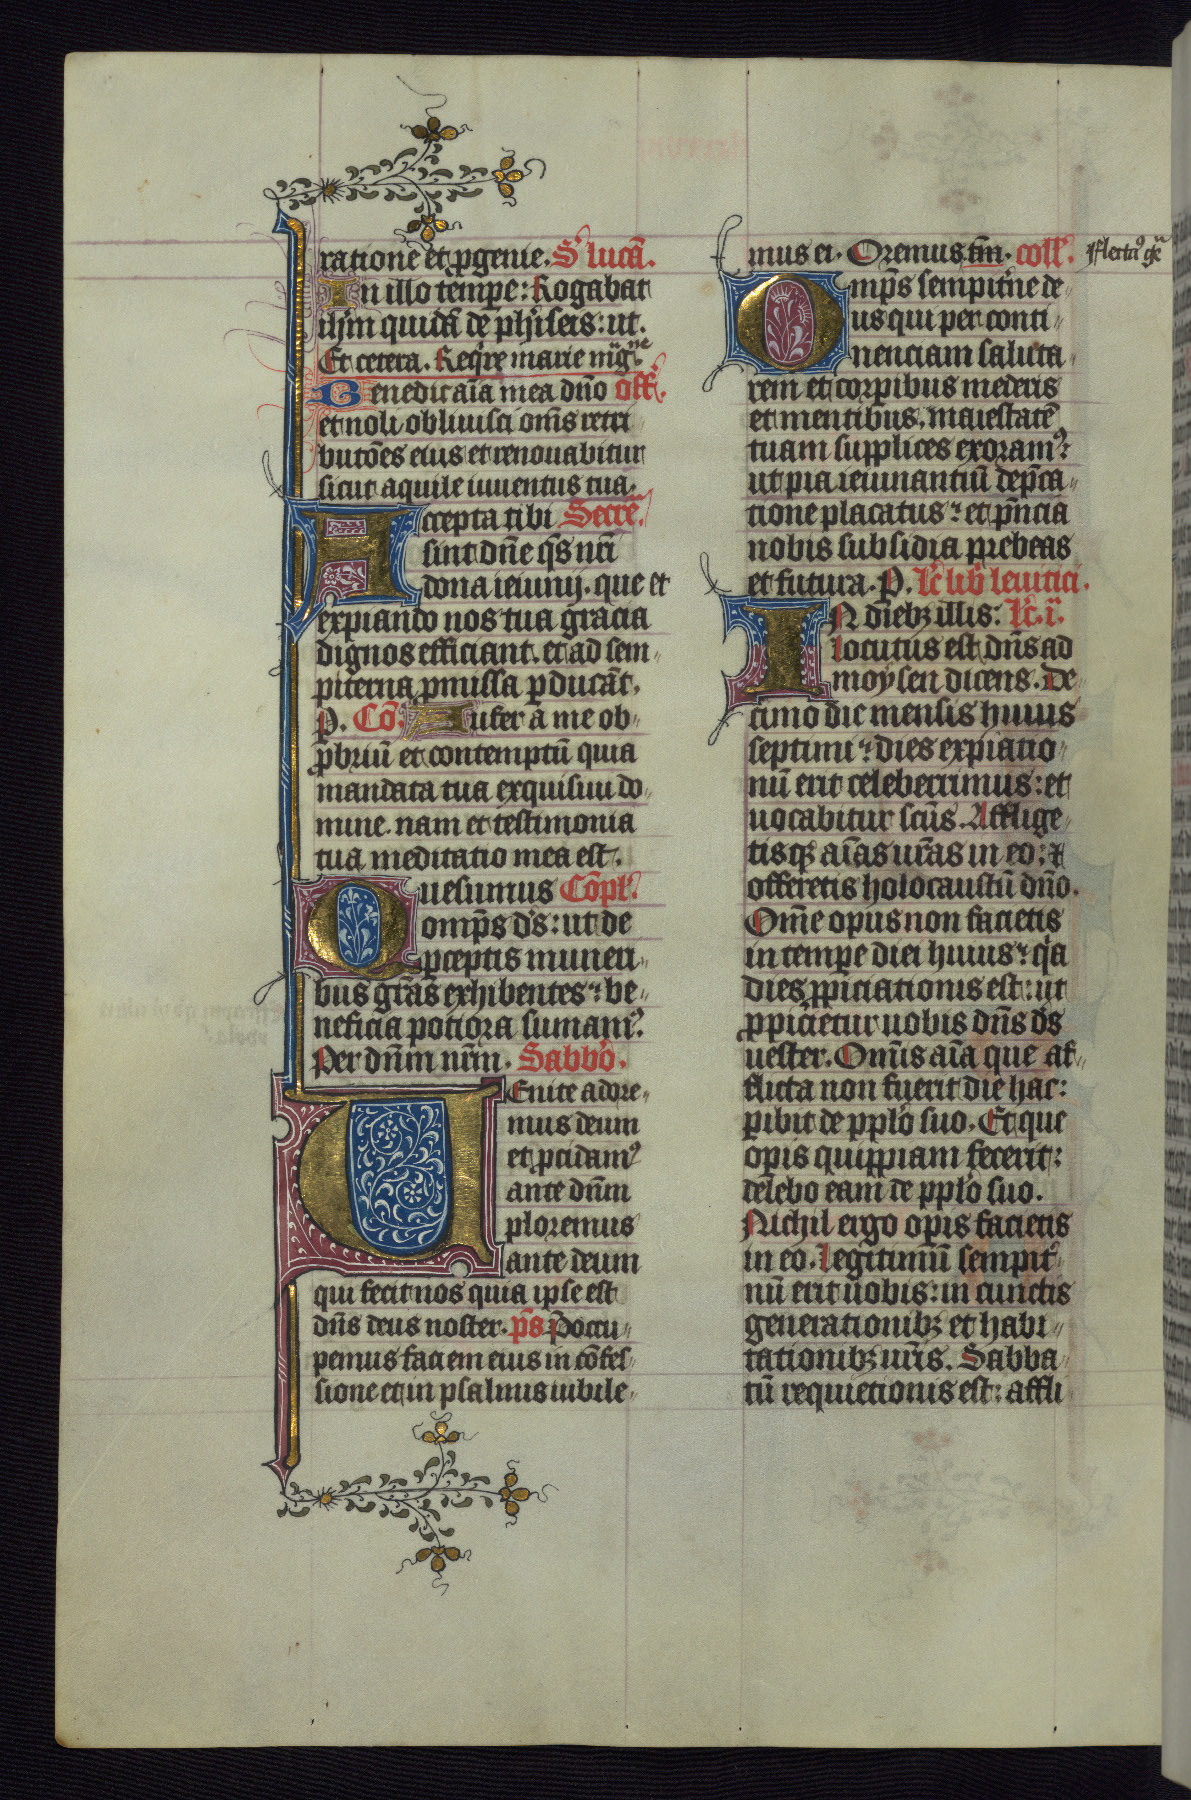 ratione et ꝓgenie. S' lucā.
In illo tempe: Rogabat
ihm quidā de phiseis: ut.
Et cetera. Reqͥre marie mͣgͩˡⁿᵉ
Benedic aīa mea dño off'.
et noli obliuisci om̄s retri
butōes eius et renouabitur
sicut aquile iuuentus tua.
Accepta tibi Secre͞.
sint dn̄e qs̄ nr̄i
dona ieiunij. que et
expiando nos tua gracia
dignos efficiant. et ad sem
piterna ꝓmissa ꝑducāt.
P. Cō. Aufer a me ob
ꝓbriū et contemptū quia
mandata tua exquisiui do
mine. nam et testimonia
tua meditatio mea est.
Quesumus Cōpl'.
omps̄ ds̄: ut de
ꝑceptis muneri
bus grās exhibentes: be
neficia potiora sumamꝰ.
Per dn̄m nr̄m. Sabbo.
Uenite adore
mus deum
et ꝓcidamꝰ
ante dn̄m
ploremus
ante deum
qui fecit nos quia ipse est
dn̄s deus noster. ps̄ P̄occu
pemus faciem eius in cōfes
sione et in psalmis iubile
mus ei. Oremus. tm̄. coll'. fflectaꝰ gē
Omps̄ sempitne de
us qui per conti
nenciam saluta
rem et corpibus mederis
et mentibus. maiestatē
tuam supplices exoramꝰ:
ut pia ieiunantiū dep̄ca
tione placatus: et pn̄cia
nobis subsidia prebeas
et futura. P. Lc̄ lib' leuitici.
IN diebꝫ illis: Lc̄. i.
locutus est dn̄s ad
moysen dicens. De
cimo die mensis huius
septimi: dies expiatio
nū erit celeberrimus: et
uocabitur scūs. Afflige
tisqꝫ aīas ur̄as in eo: ⁊
offeretis holocaustū dño.
Om̄e opus non facietis
in tempe diei huius: qͥa
dies ꝓpiciationis est: ut
ꝓpicietur uobis dn̄s ds̄
uester. Omīs aīa que af
flicta non fuerit die hac:
ꝑibit de pplo suo. Et que
opis quippiam fecerit:
delebo eam de pplo suo.
Nichil ergo opis facietis
in eo. Legitimū sempit
nū erit uobis: in cunctis
generationibꝫ et habi
tationibꝫ ur̄is. Sabba
tū requietionis est: affli